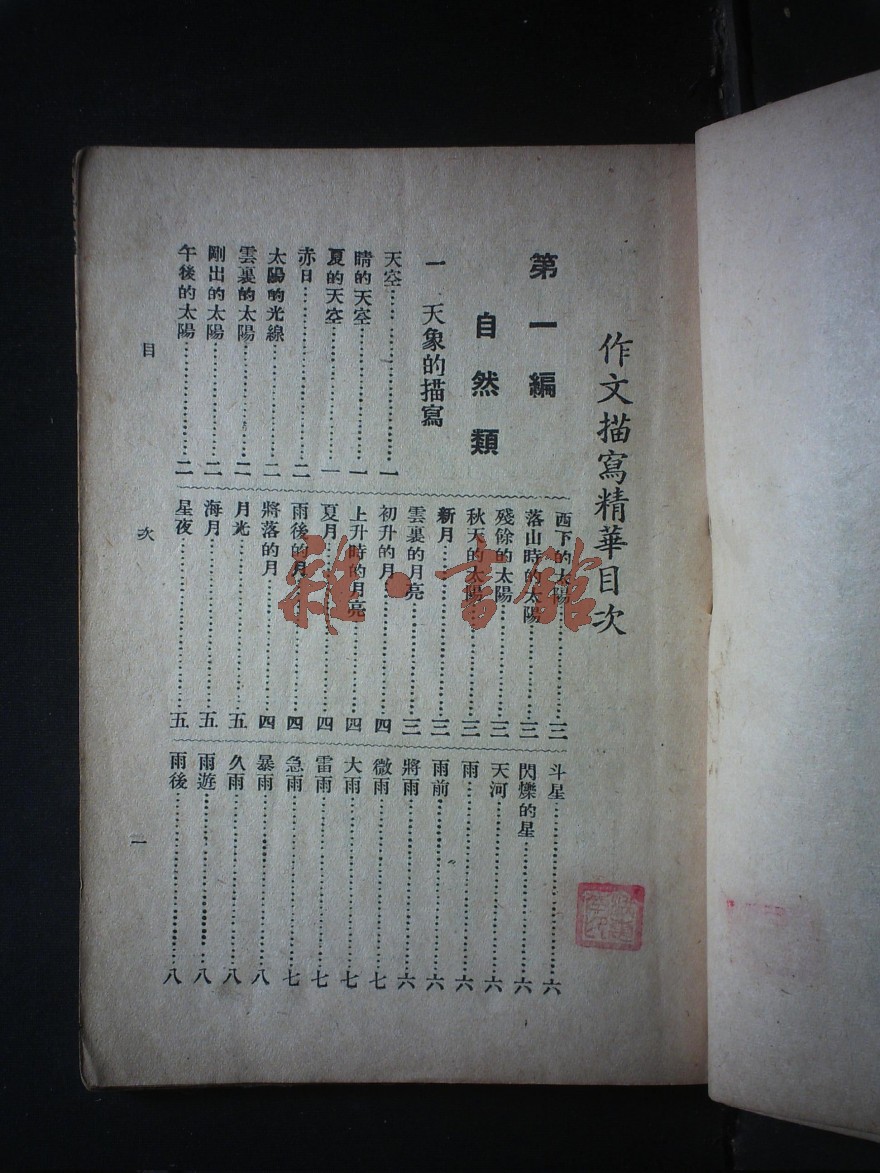 作文描寫精華目次
第一編
自然類
一 天象的描寫
天空……一
晴的天空……一
夏的天空……一
赤日……二
太陽的光線……二
雲裏的太陽……二
剛出的太陽……二
午後的太陽……二
西下的太陽……三
落山時的太陽……三
殘餘的太陽……三
秋天的太陽……三
新月……三
雲裏的月亮……三
初升的月……四
上升時的月亮……四
夏月……四
雨後的月……四
將落的月……四
月光……五
海月……五
星夜……五
斗星……六
閃爍的星……六
天河……六
雨……六
雨前……六
將雨……六
微雨……七
大雨……七
雷雨……七
急雨……七
暴雨……八
久雨……八
雨遊……八
雨後……八
目次
一
雜·書館